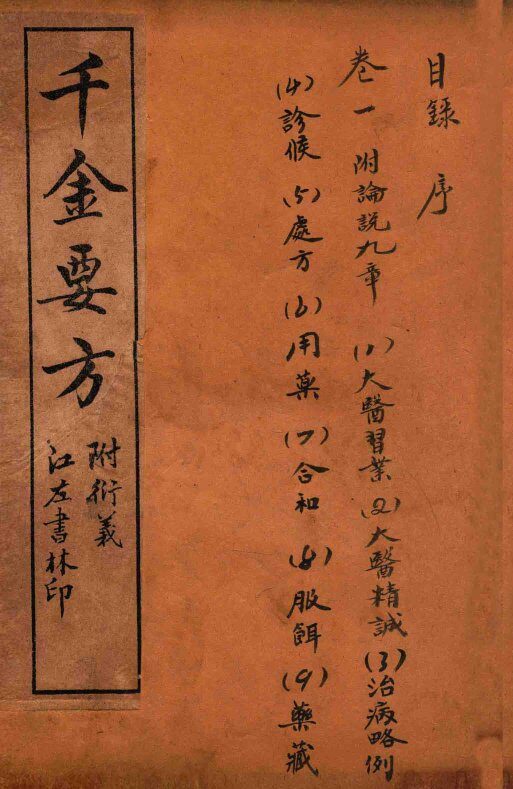 目錄 序
卷一 附論説九章 (1)大醫習業(2)大醫精誠(3)治病略例
(4)診候 (5)處方 (6)用藥 (7)合和 (8)服餌 (9)藥藏
千金要方
附衍義
江左書林印